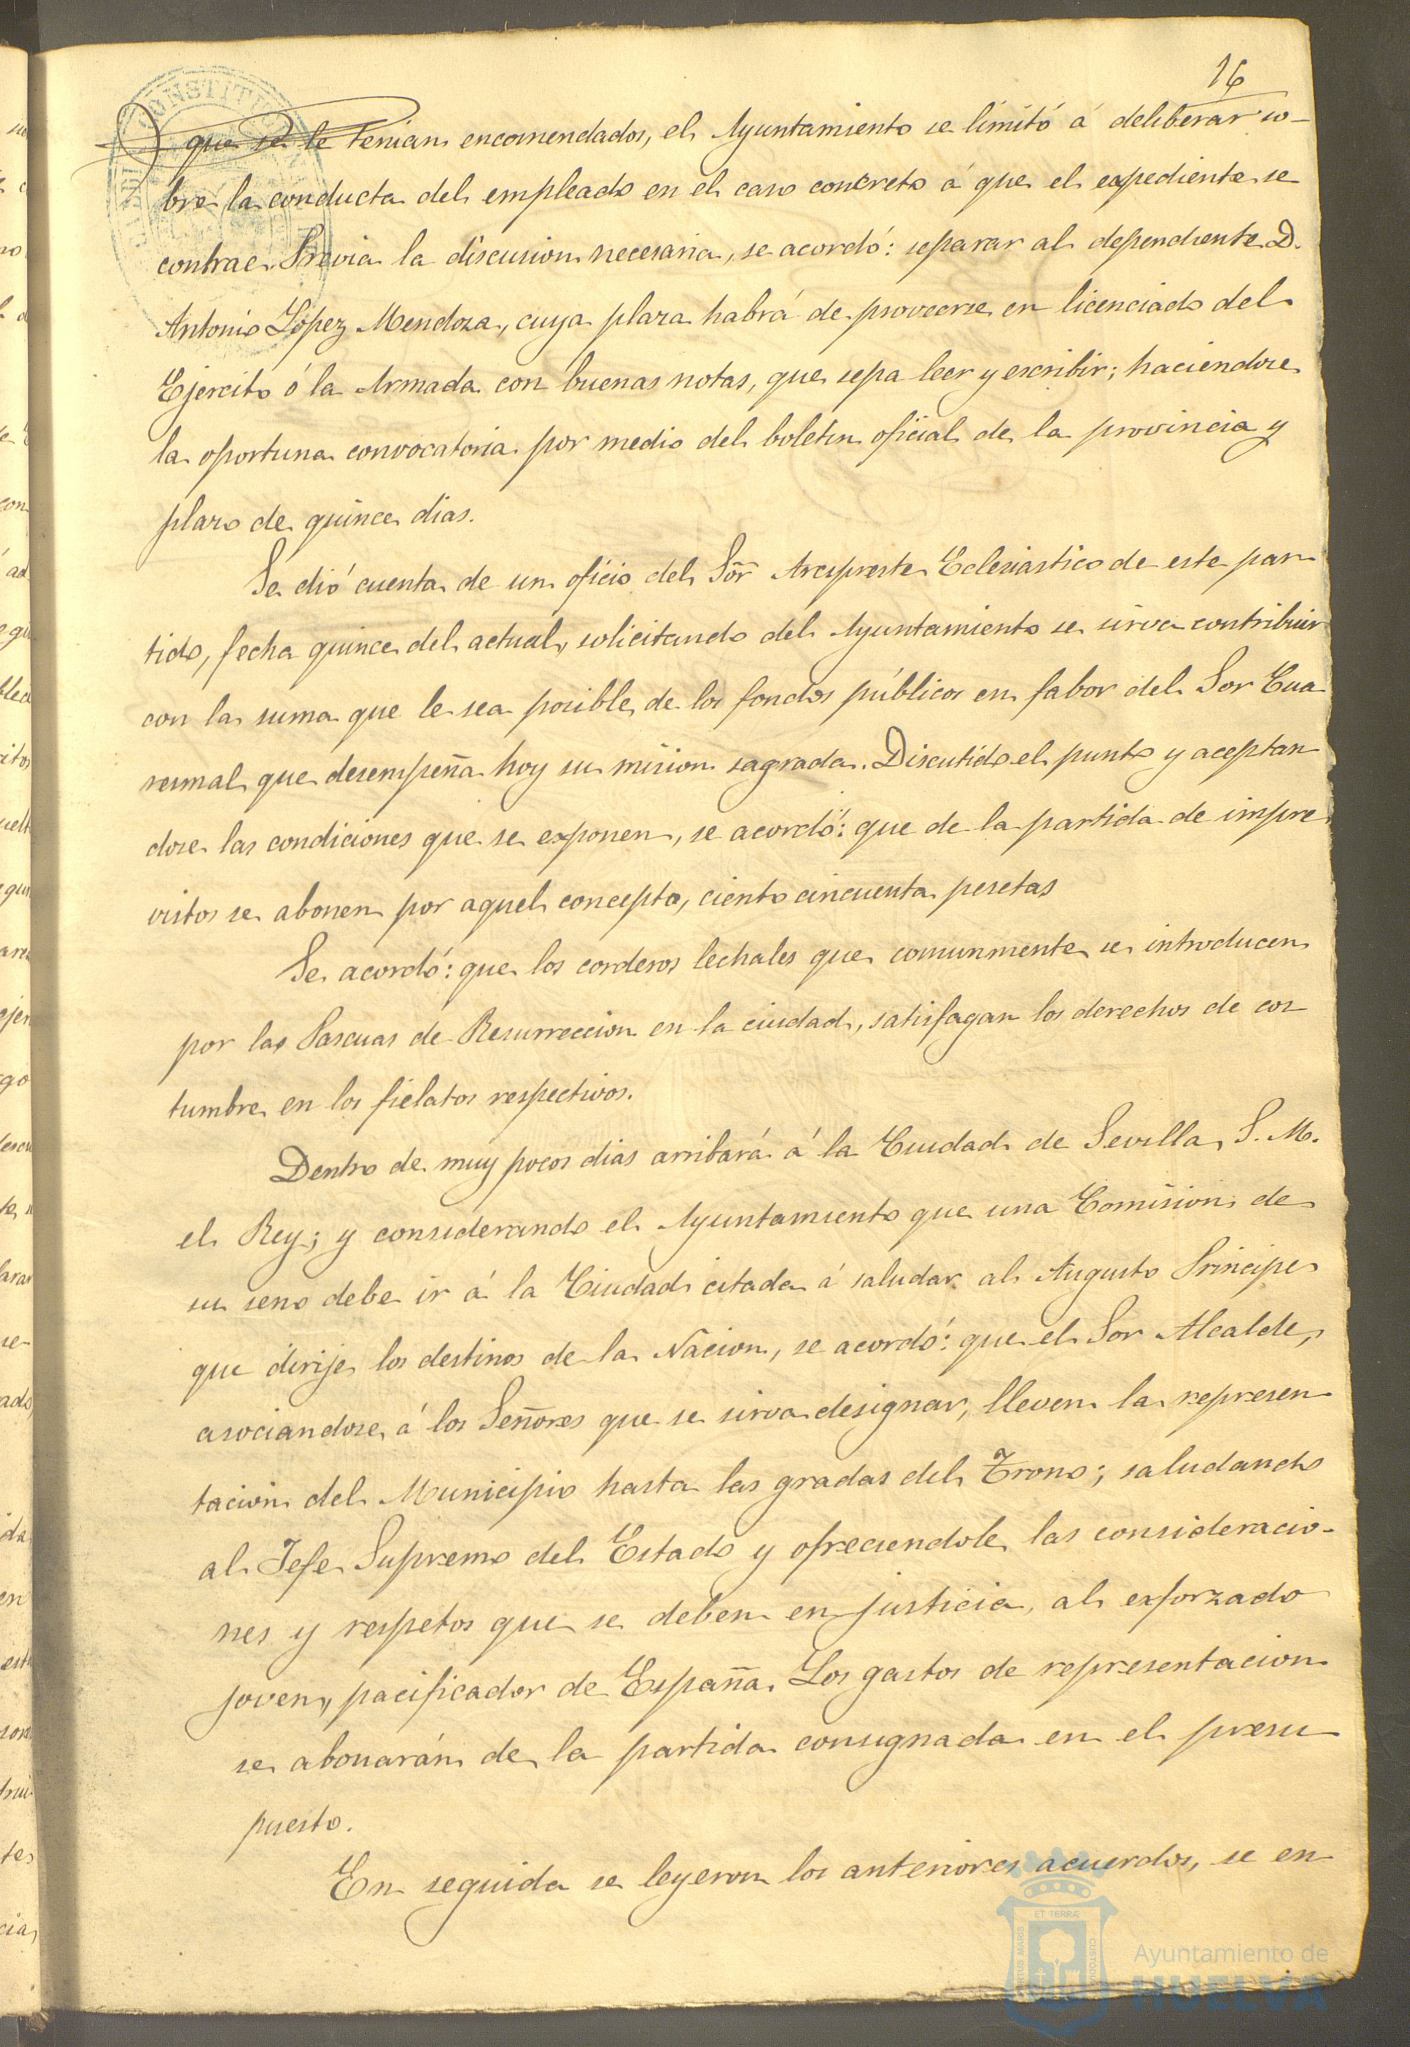 16
que se le tenian encomendados, el Ayuntamiento se limitó á deliberar so-
bre la conducta del empleado en el caso concreto á que el expediente se
contrae. Previa la discusion necesaria, se acordó: separar al dependiente D.
Antonio López Mendoza, cuya plaza habrá de proveerse en licenciado del
Ejercito ó la Armada con buenas notas, que sepa leer y escribir; haciendose
la oportuna convocatoria por medio del boletin oficial de la provincia y
plazo de quince dias.
Se dió cuenta de un oficio del Sōr Arcipreste Eclesiastico de este par
tido, fecha quince del actual, solicitando del Ayuntamiento se sirva contribuir
con la suma que le sea posible de los fondos públicos en fabor del Sor Cua
resmal que desempeña hoy su mision sagrada. Discutido el punto y aceptan
dose las condiciones que se exponen, se acordó: que de la partida de impre
vistos se abonen por aquel concepto, ciento cincuenta pesetas
Se acordó: que los corderos lechales que comunmente se introducen
por las Pascuas de Resurreccion en la ciudad, satisfagan los derechos de cos
tumbre en los fielatos respectivos.
Dentro de muy pocos dias arribará á la Ciudad de Sevilla, S. M.
el Rey; y considerando el Ayuntamiento que una Comision de
su seno debe ir á la Ciudad citada á saludar al Augusto Principe
que dirije los destinos de la Nacion, se acordó: que el Sor Alcalde,
asociandose á los Señores que se sirva designar, lleven la represen
tacion del Municipio hasta las gradas del Trono; saludando
al Jefe Supremo del Estado y ofreciendole las consideracio-
nes y respetos que se deben en justicia, al esforzado
joven, pacificador de España. Los gastos de representacion
se abonarán de la partida consignada en el presu
puesto.
En seguida se leyeron los anteriores acuerdos, se en
Ayuntamiento de
HUELVA